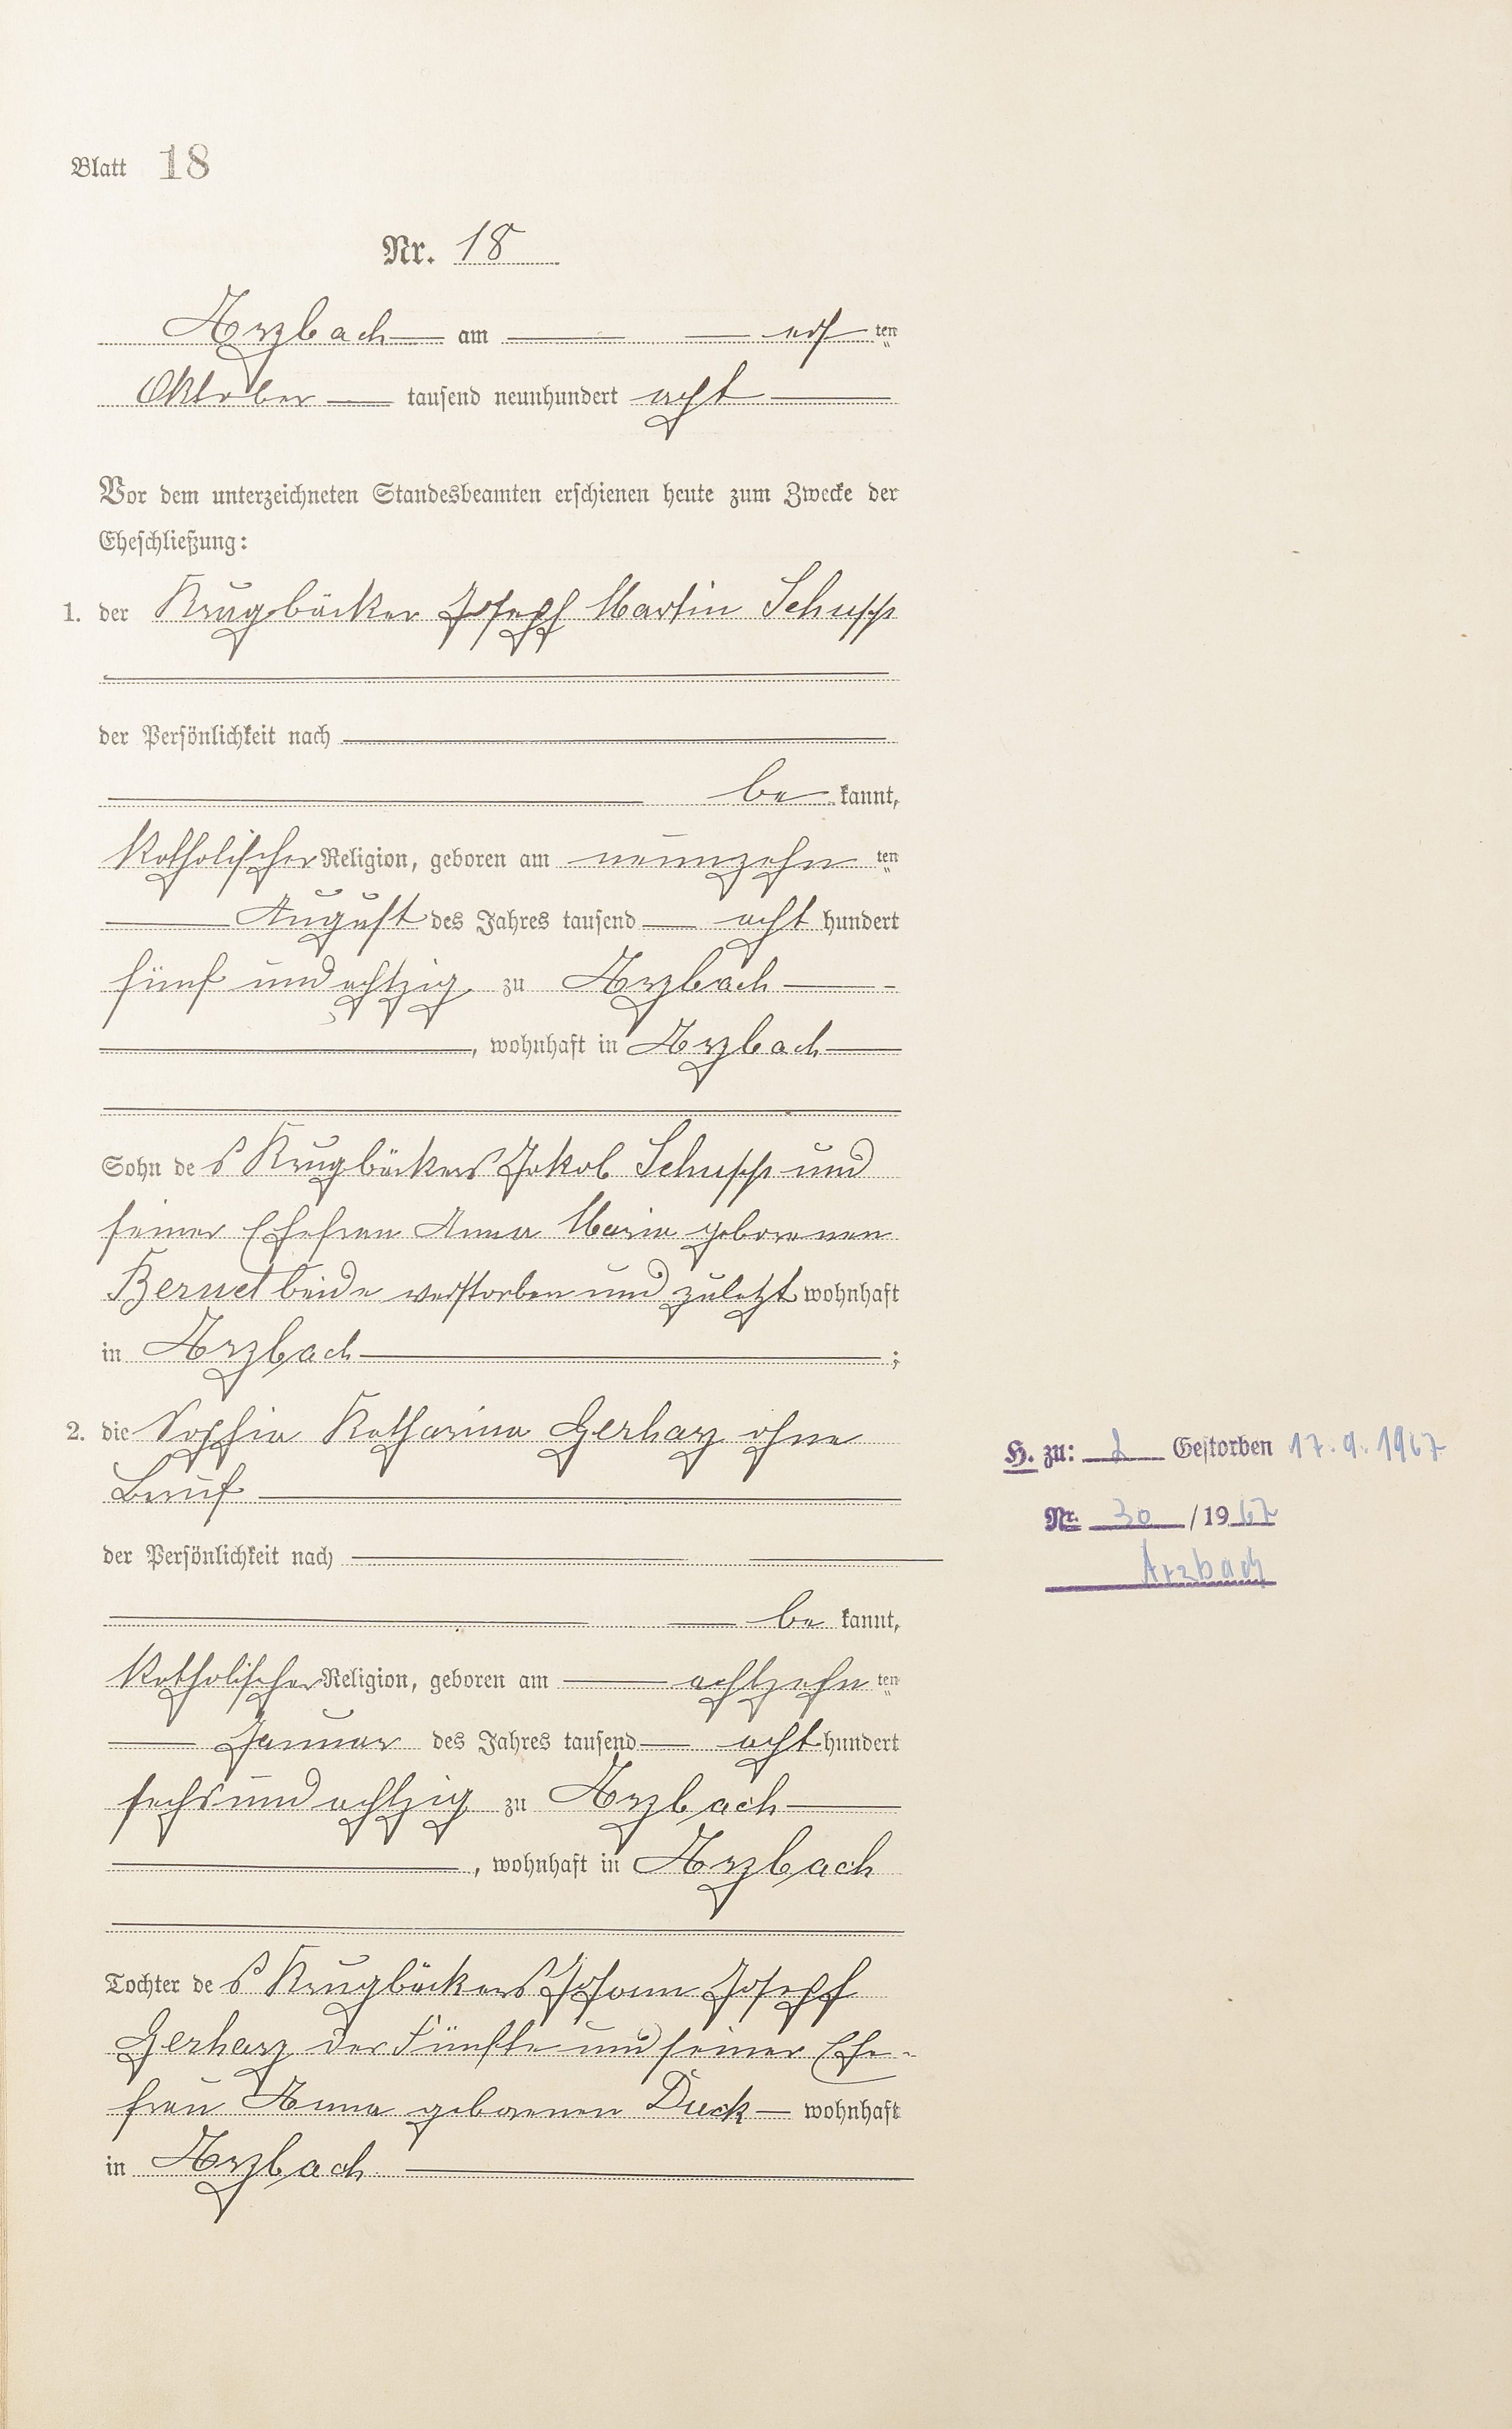 Blatt 18
Nr. 18
Arzbach am ten
Oktober tausend neunhundert acht
Vor dem unterzeichneten Standesbeamten erschienen heute zum Zwecke der
Eheschließung:
1. der Krugbäcker Joseph Martin Schupp
der Persönlichkeit nach
be kannt,
katholischer Religion, geboren am neunzehn ten
August des Jahres tausend acht hundert
fünf und achtzig zu Arzbach
, wohnhaft in Arzbach
Sohn de s Krugbäckers Jakob Schupp und
seiner Ehefrau Anna Maria geborenen
beide verstorben und zuletzt wohnhaft
in Arzbach ;
2. die Sophia Katharina Gerharz ohne
Beruf
der Persönlichkeit nach
be kannt,
katholischer Religion, geboren am achtzehn ten
Januar des Jahres tausend acht hundert
sechs und achtzig zu Arzbach
, wohnhaft in Arzbach
Tochter de s Krugbäckers Johann Joseph
Gerharz der Fünfte und seiner Ehe-
frau Anna geborenen Duck wohnhaft
in Arzbach
H. zu: 2 Gestorben 17.9.1967
Nr. 30 / 1967
Arzbach